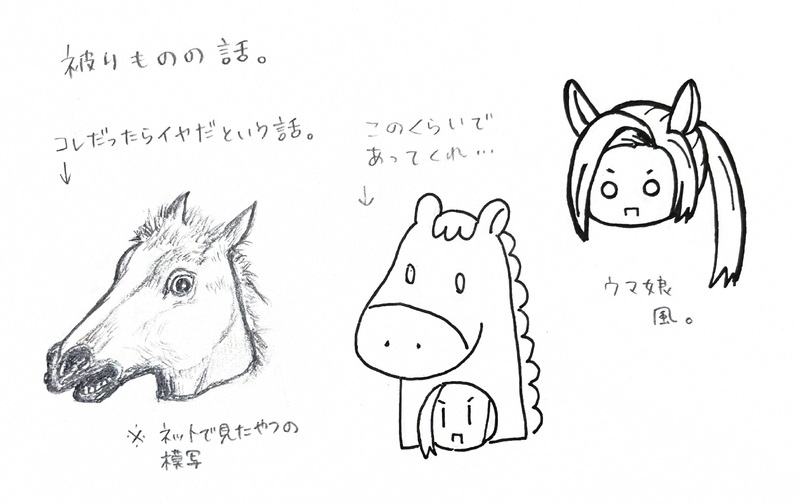 被りものの話。
コレだったらイヤだという話。
↓
このくらいで
あってくれ…
↓
ウマ娘
風。
※ネットで見たやつの
模写